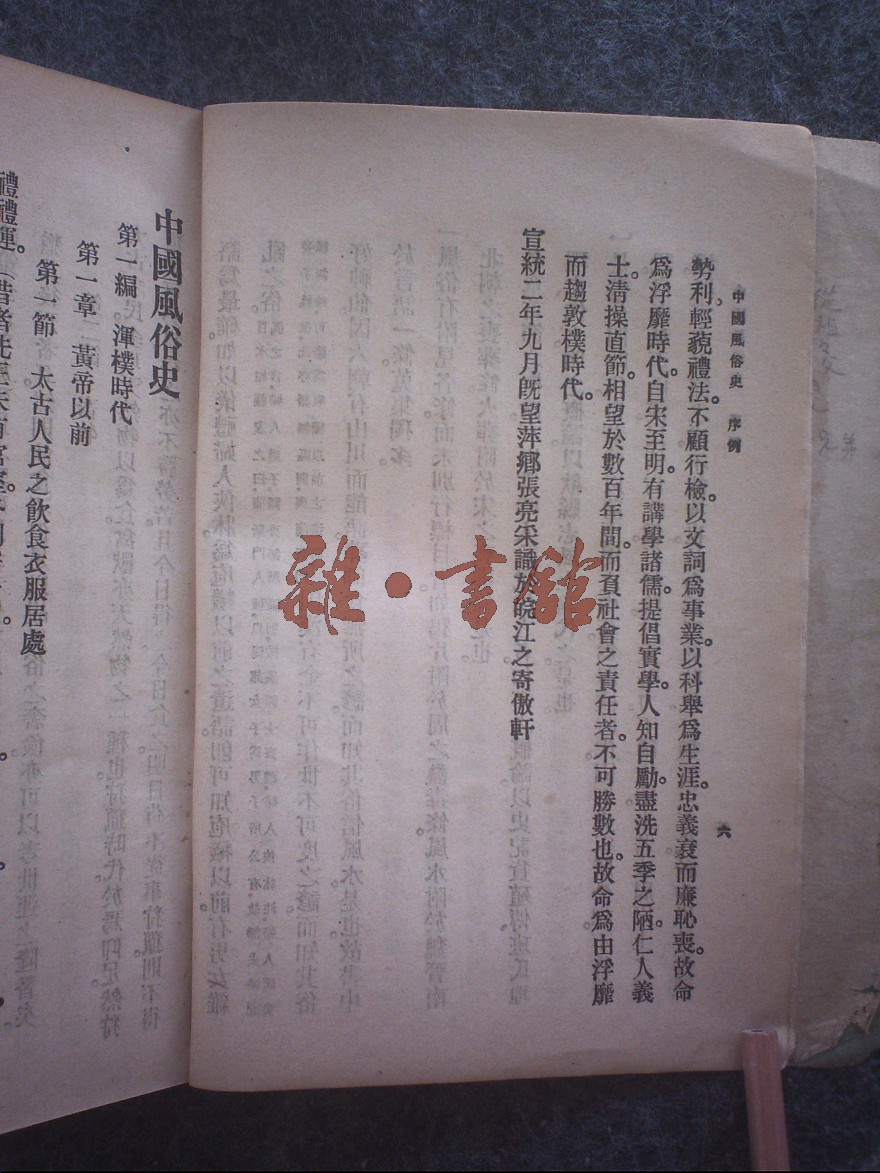 中國風俗史 序例
六
勢利。輕藐禮法。不顧行檢。以文詞爲事業。以科舉爲生涯。忠義衰而廉恥喪。故命
爲浮靡時代。自宋至明。有講學諸儒。提倡實學。人知自勵。盡洗五季之陋。仁人義
士。清操直節。相望於數百年間。而負社會之責任者。不可勝數也。故命爲由浮靡
而趨敦樸時代。
宣統二年九月旣望萍鄉張亮采識於皖江之寄傲軒
中國風俗史
第一編 渾樸時代
第一章 黃帝以前
第一節 太古人民之飲食衣服居處
禮禮運。昔者先王未有宮室。
雜·書館